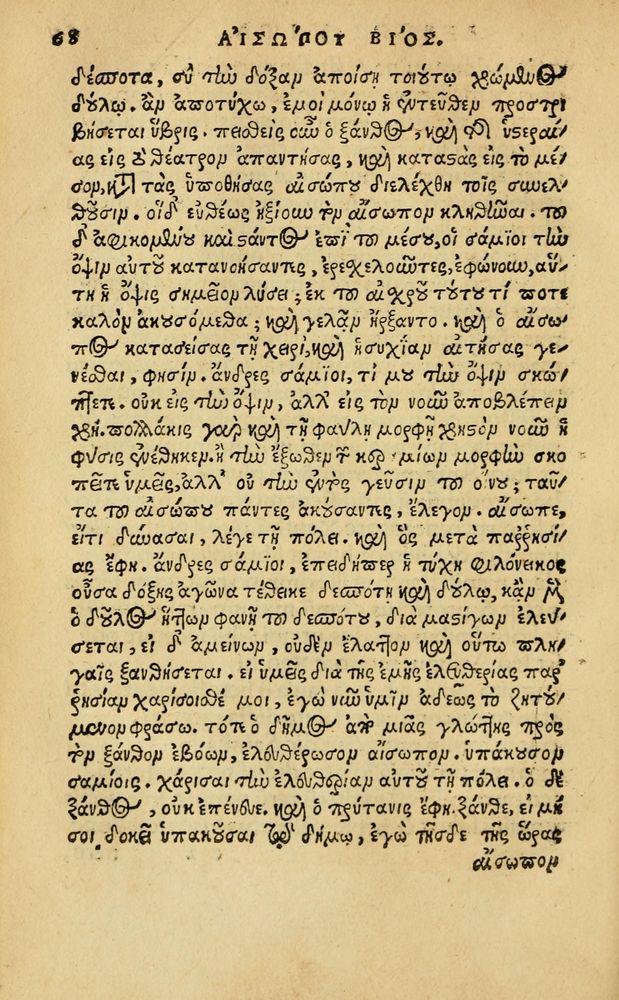 68 ΑΙΣΩΠΟΥ ΒΙΟΣ.
δέσποτα, σὺ τὴν δόξαν ἀποίσῃ τοιούτῳ χρώμενος
δούλῳ. ἂν ἀποτύχω, ἐμοὶ μόνῳ ἡ ἐντεῦθεν προστρι
βήσεται ὕβρις. πεισθεὶς οὖν ὁ ξάνθος, καὶ τῇ ὑστεραί-
ας εἰς τὸ θέατρον ἀπαντήσας, καὶ καταστὰς εἰς τὸ μέ-
σον, κατὰ τὰς ὑποθήσας αἰσώπου διελέχθη τοῖς συνελ-
θοῦσιν. οἱ δ' εὐθέως ἠξίουν τὸν αἴσωπον κληθῆναι. τοῦ
δ' ἀφικομένου καὶ στάντος ἐπὶ τοῦ μέσου, οἱ σάμιοι τὴν
ὄψιν αὐτοῦ κατανοήσαντες, ἐρεχελοῦντες, ἐφώνουν, αὕ-
τη ἡ ὄψις σημεῖον λύσει; ἐκ τοῦ αἰχροῦ τούτου τί ποτε
καλὸν ἀκουσόμεθα; καὶ γελᾶν ἤρξαντο. καὶ ὁ αἴσω-
πος κατασείσας τῇ χειρί, καὶ ἡσυχίαν αἰτήσας γε-
νέσθαι, φησίν. ἄνδρες σάμιοι, τί μου τὴν ὄψιν σκώ-
πτετε. οὐκ εἰς τὴν ὄψιν, ἀλλ' εἰς τὸν νοῦν ἀποβλέπειν
χρή. πολλάκις γὰρ καὶ τῇ φαύλῃ μορφῇ χρηστὸν νοῦν ἡ
φύσις ἐνέθηκεν. ἢ τὴν ἔξωθεν τῶν κεραμίων μορφὴν σκο
πεῖτε ὑμεῖς, ἀλλ' οὐ τὴν ἐντὸς γεῦσιν τοῦ οἴνου; ταῦ-
τα τοῦ αἰσώπου πάντες ἀκούσαντες, ἔλεγον. αἴσωπε,
εἴτι δύνασαι, λέγε τῇ πόλει. καὶ ὃς μετὰ παῤῥησί-
ας ἔφη. ἄνδρες σάμιοι, ἐπειδήπερ ἡ τύχη φιλόνεικος
οὖσα δόξης ἀγῶνα τέθεικε δεσπότῃ καὶ δούλῳ, κἂν μὲν
ὁ δοῦλος ἥττων φανῇ τοῦ δεσπότου, διὰ μαστίγων ἐλεύ-
σεται, εἰ δ' ἀμείνων, οὐδὲν ἔλαττον καὶ οὕτω πλη-
γαῖς ξανθήσεται. εἰ ὑμεῖς διὰ τῆς ἐμῆς ἐλευθερίας παρ
ῥησίαν χαρίσοισθέ μοι, ἐγὼ νῦν ὑμῖν ἀδεῶς τὸ ζητού-
μενον φράσω. τότε ὁ δῆμος ἀπὸ μιᾶς γλώττης πρὸς
τὸν ξάνθον ἐβόων, ἐλευθέρωσον αἴσωπον. ὑπάκουσον
σαμίοις. χάρισαι τὴν ἐλευθερίαν αὐτοῦ τῇ πόλει. ὁ δὲ
ξάνθος, οὐκ ἐπένευε. καὶ ὁ πρύτανις ἔφη. ξάνθε, εἰ μή
σοι δοκεῖ ὑπακοῦσαι τῷ δήμῳ, ἐγὼ τῆσδε τῆς ὥρας
αἴσωπον